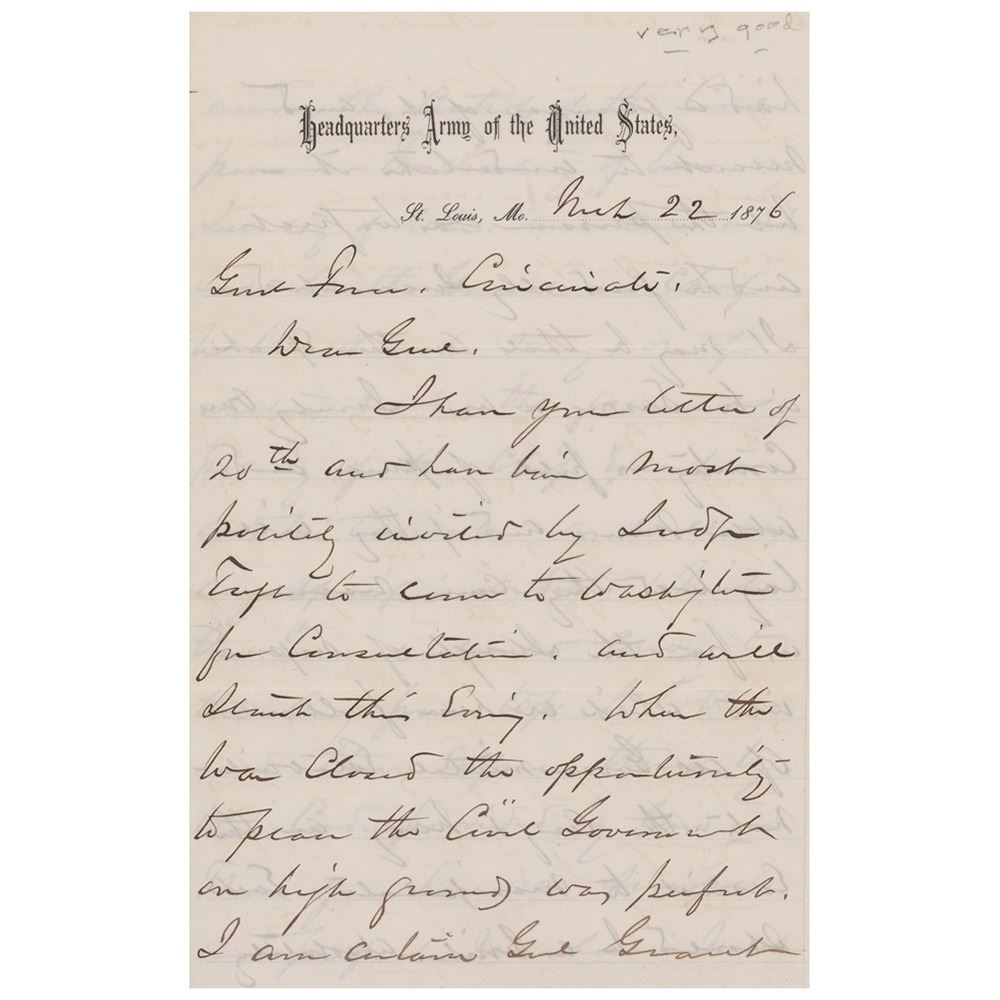 very good
Headquarters Army of the United States,
St. Louis, Mo. Mch 22 1876
Genl Force. Cincinati.
Dear Genl.
I have your letter of
20th and have been most
politely invited by Judge
Taft to come to Washington
for Consultation. and will
Start this Evening. When the
War Closed the opportunity
to place the Civil Government
on high ground was perfect.
I am certain Genl Grant